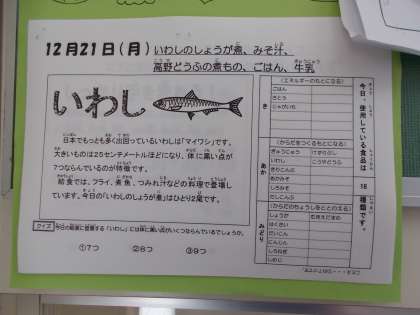 12月21日(月) いわしのしょうが煮、みそ汁、
高野どうふの煮もの、ごはん、牛乳
いわし
日本でもっとも多く出回っているいわしは「マイワシ」です。
大きいものは25センチメートルほどになり、体に黒い点が
7つならんでいるのが特徴です。
給食では、フライ、煮魚、つみれ汁などの料理で登場し
ています。今日の「いわしのしょうが煮」はひとり2尾です。
クイズ 今日の給食に登場する「いわし」には体に黒い点がいくつならんでいるでしょうか。
①7つ ②8つ ③9つ
今日、使用している食品は 18 種類です。
き
(エネルギーのもとになる)
ごはん
さとう
じゃがいも
あか
(からだをつくるもとになる)
ぎゅうにゅう
いわし こうやどうふ
あかみそ
しろみそ
みどり
(からだのちょうしをととのえる)
しょうが
はくさい
だいこん
にんじん
しめじ